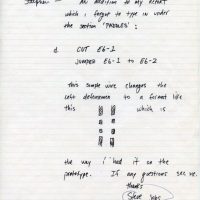 Stephen — AN addition to my REPORT
which I forgot to type in under
the section "PADDLES":
d. CUT E6-1
JUMPER E6-1 to E6-2
This simple wire changes the
left
to a format like
this
which is
the way I had it on the
prototype. If any questions see me.
thanks
Steve Jobs